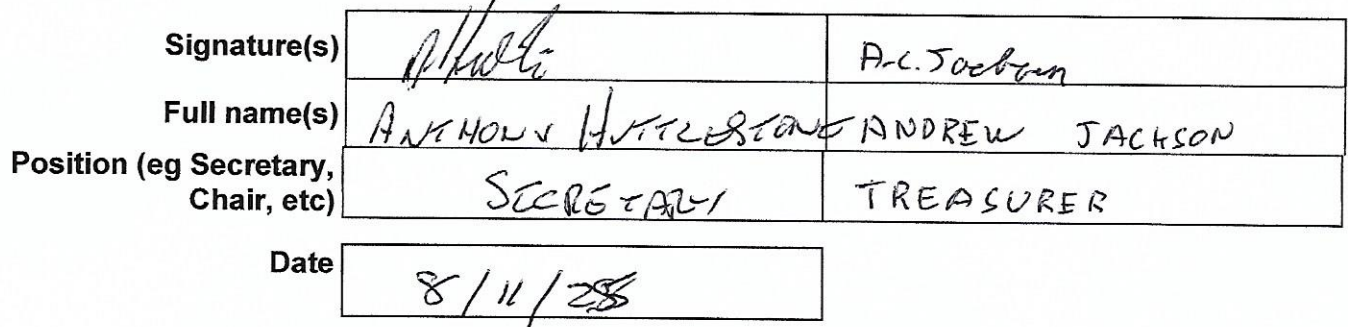 Signature(s) A.C. Jackson
Full name(s) ANTHONY HUTTLESTONE ANDREW JACKSON
Position (eg Secretary,
Chair, etc) SECRETARY TREASURER
Date 8/11/